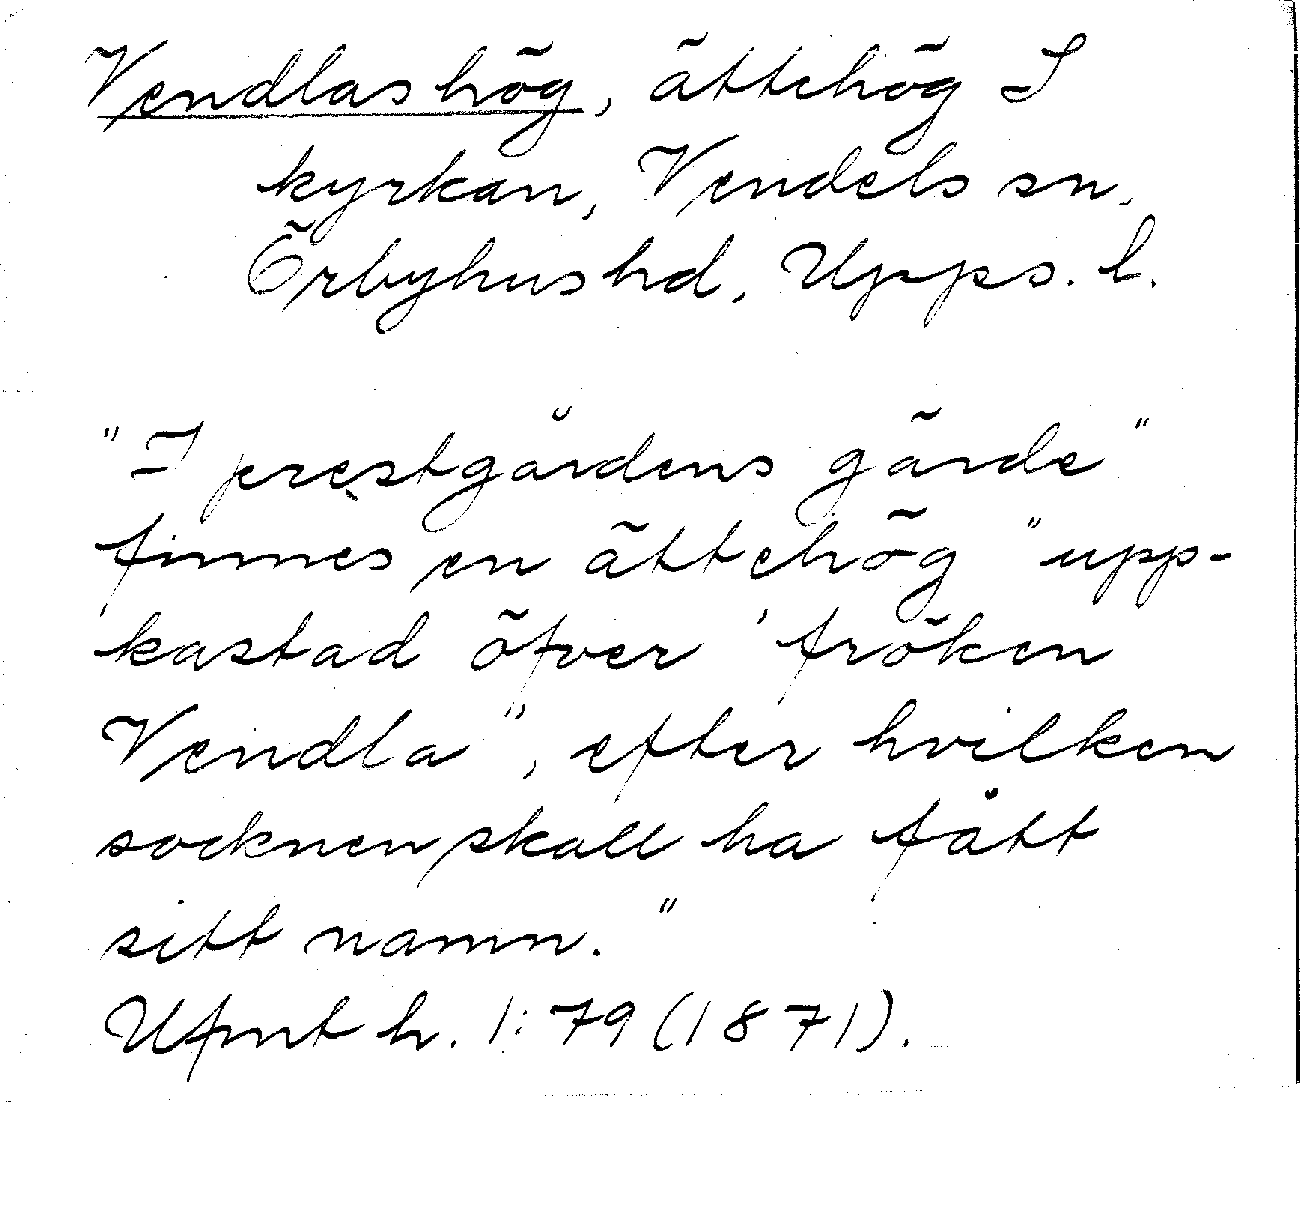 Vendlas hög, ättehög S
kyrkan, Vendels sn,
Örbyhus hd, Upps. l.
"I prestgårdens gärde"
finnes en ättehög "upp-
kastad öfver 'fröken
Vendla", efter hvilken
socknen skall ha fått
sitt namn."
Ufmt h. 1:79 (1871).